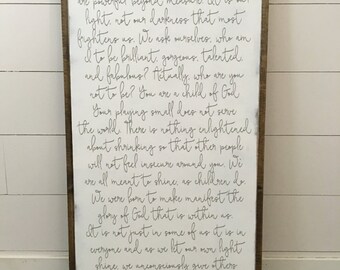 are powerful beyond measure. It is our
light, not our darkness that most
frightens us. We ask ourselves, who am
I to be brilliant, gorgeous, talented,
and fabulous? Actually, who are you
not to be? You are a child of God.
Your playing small does not serve
the world. There is nothing enlightened
about shrinking so that other people
will not feel insecure around you. We
are all meant to shine, as children do.
We were born to make manifest the
glory of God that is within us.
It is not just in some of us it is in
everyone and as we let our own light
shine, we unconsciously give others